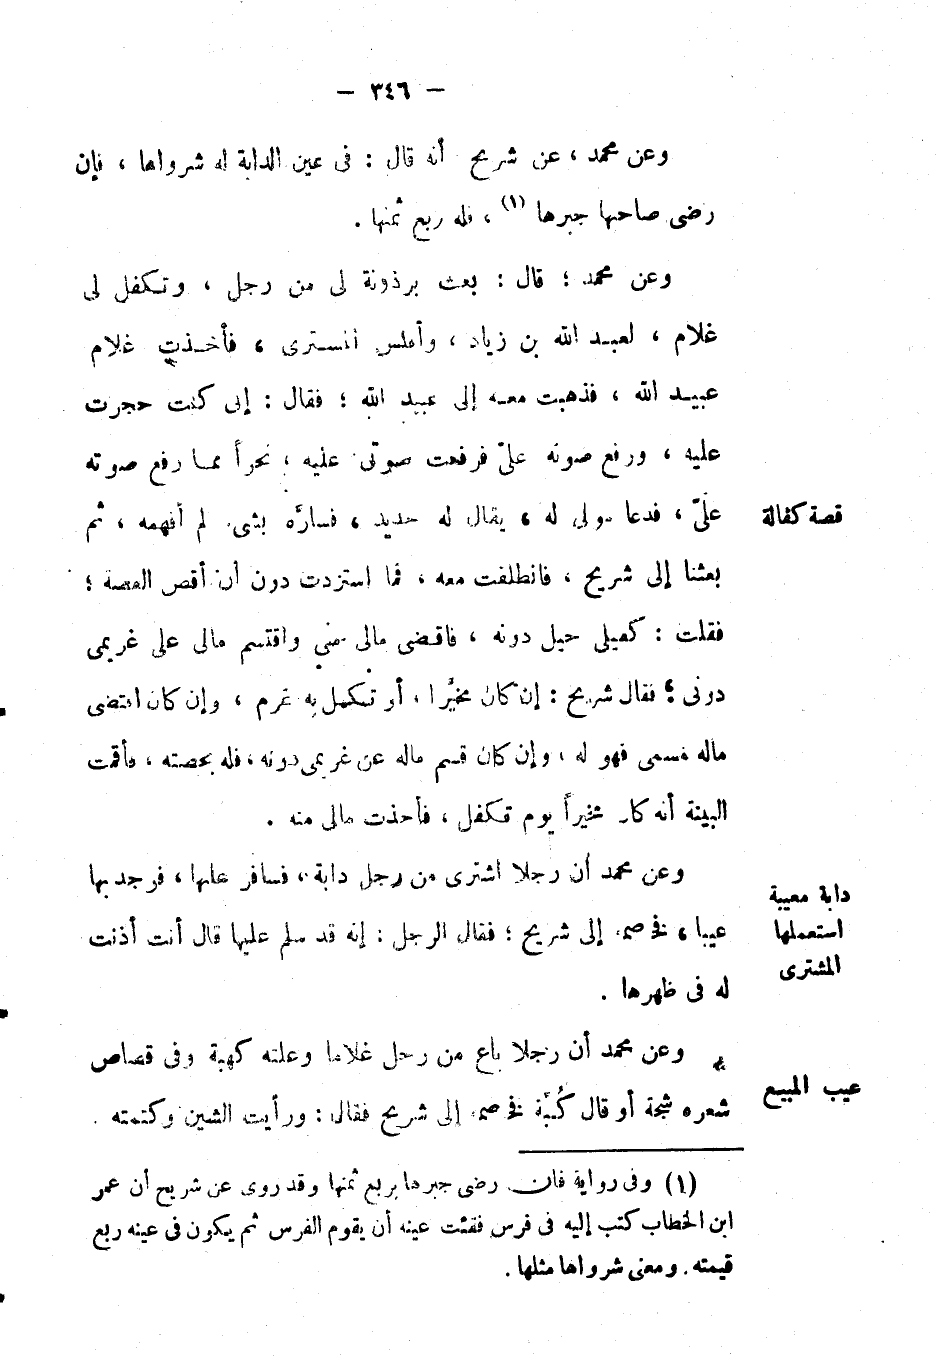 — ٣٤٦ —
وعن محمد ، عن شريح أنه قال : فى عين الدابة له شرواها ، فإن
رضى صاحبها جبرها (١) ، فله ربع ثمنها .
وعن محمد ؛ قال : بعث برذونة لى من رجل ، وتكفل لى
غلام ، لعبيد الله بن زياد ، وأفلس المشترى ، فأخذت غلام
عبيد الله ، فذهبت معه إلى عبيد الله ؛ فقال : إنى كنت حجرت
عليه ، ورفع صوته علىّ فرفعت صوتى عليه ؛ نحراً مما رفع صوته
علىّ ، فدعا مولى له ، يقال له حديد ، فسارّه بشىء لم أفهمه ، ثم
بعثنا إلى شريح ، فانطلقت معه ، فما استزدت دون أن أقص القصة ؛
فقلت : كفيلى حيل دونه ، فاقضى مالى منى واقتسم مالى على غريمى
دونى ؛ فقال شريح : إن كان مخيَّرا ، أو تكفل به غرم ، وإن كان اقتضى
ماله مسمى فهو له ، وإن كان قسم ماله عن غريمى دونه ، فله بحصته ، فأقمت
البينة أنه كان مخيراً يوم تكفل ، فأخذت مالى منه .
قصة كفالة
وعن محمد أن رجلا اشترى من رجل دابة ، فسافر عليها ، فوجد بها
عيبا ، فخاصمه إلى شريح ؛ فقال الرجل : إنه قد سلم عليها قال أنت أذنت
له فى ظهرها .
دابة معيبة
استعملها
المشترى
وعن محمد أن رجلا باع من رجل غلاما وعلته كهبة وفى قصاص
شعره شجة أو قال كُبَّة فخاصمه إلى شريح فقال : ورأيت الشين وكتمته .
عيب المبيع
(١) وفى رواية فان رضى جبرها بربع ثمنها وقد روى عن شريح أن عمر
ابن الخطاب كتب إليه فى فرس فقئت عينه أن يقوم الفرس ثم يكون فى عينه ربع
قيمته . ومعنى شرواها مثلها .